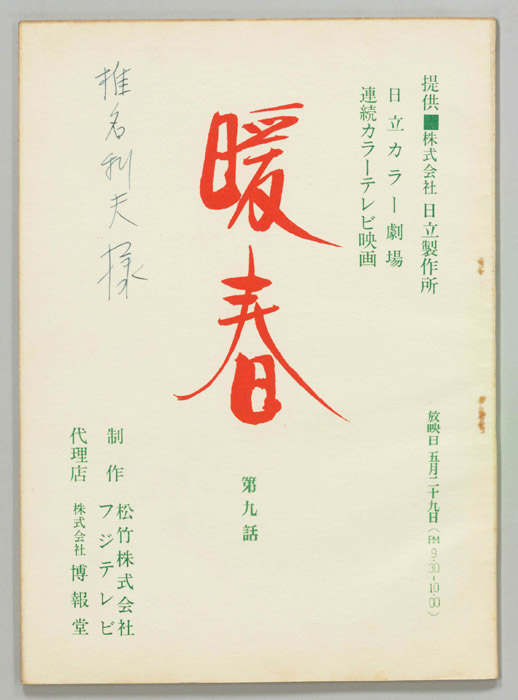 提供 株式会社 日立製作所
日立カラー劇場
連続カラーテレビ映画
放映日 五月二十九日(PM 9:30-10:00)
暖春
第九話
椎名利夫様
制作 松竹株式会社
フジテレビ
代理店 株式会社 博報堂